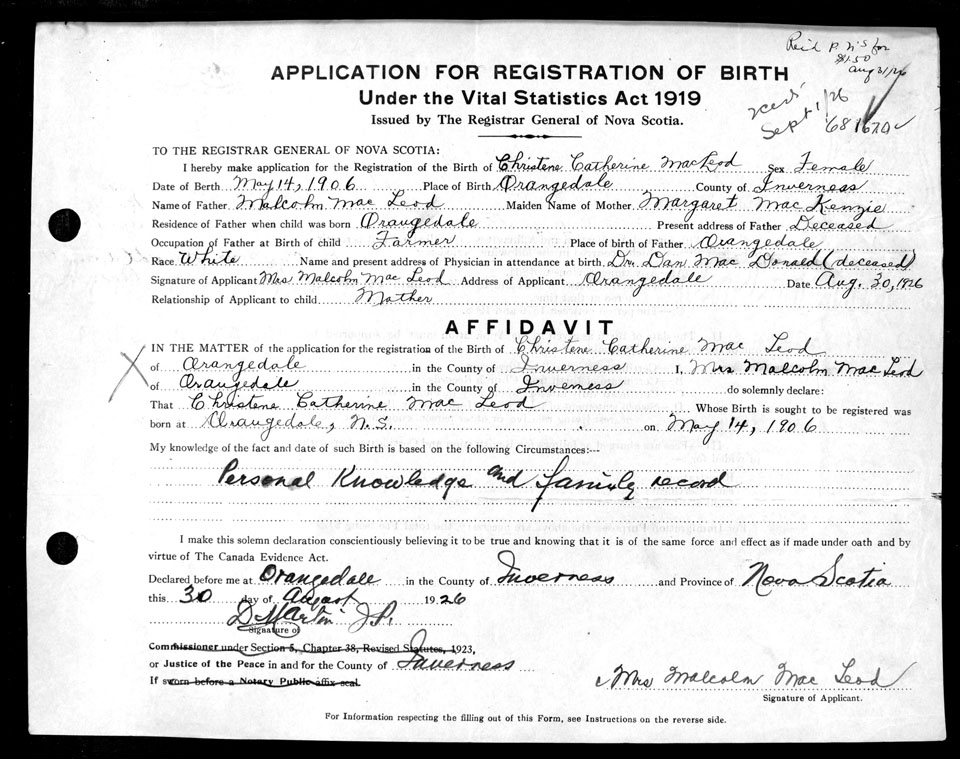 Rec'd P. N's for
$1.50
Aug 31/26
APPLICATION FOR REGISTRATION OF BIRTH
Under the Vital Statistics Act 1919
Sept 1/26
Issued by The Registrar General of Nova Scotia.
TO THE REGISTRAR GENERAL OF NOVA SCOTIA:
I hereby make application for the Registration of the Birth of Christene Catherine MacLeod Sex Female
Date of Birth May 14, 1906 Place of Birth Orangedale County of Inverness
Name of Father Malcolm Mac Leod Maiden Name of Mother Margaret Mac Kenzie
Residence of Father when child was born Orangedale Present address of Father Deceased
Occupation of Father at Birth of child Farmer Place of birth of Father Orangedale
Race White Name and present address of Physician in attendance at birth Dr. Dan Mac Donald (deceased)
Signature of Applicant Mrs Malcolm Mac Leod Address of Applicant Orangedale Date Aug. 30, 1926
Relationship of Applicant to child Mother
AFFIDAVIT
X IN THE MATTER of the application for the registration of the Birth of Christene Catherine Mac Leod
of Orangedale in the County of Inverness I, Mrs Malcolm Mac Leod
of Orangedale in the County of Inverness do solemnly declare:
That Christene Catherine Mac Leod Whose Birth is sought to be registered was
born at Orangedale, N.S. on May 14, 1906
My knowledge of the fact and date of such Birth is based on the following Circumstances:--
Personal Knowledge and family record
I make this solemn declaration conscientiously believing it to be true and knowing that it is of the same force and effect as if made under oath and by
virtue of The Canada Evidence Act.
Declared before me at Orangedale in the County of Inverness and Province of Nova Scotia
this 30 day of August 1926
D Martin J.P.
Signature of
Commissioner under Section 5, Chapter 38, Revised Statutes, 1923,
or Justice of the Peace in and for the County of Inverness
If sworn before a Notary Public affix seal.
Mrs Malcolm Mac Leod
Signature of Applicant.
For Information respecting the filling out of this Form, see Instructions on the reverse side.